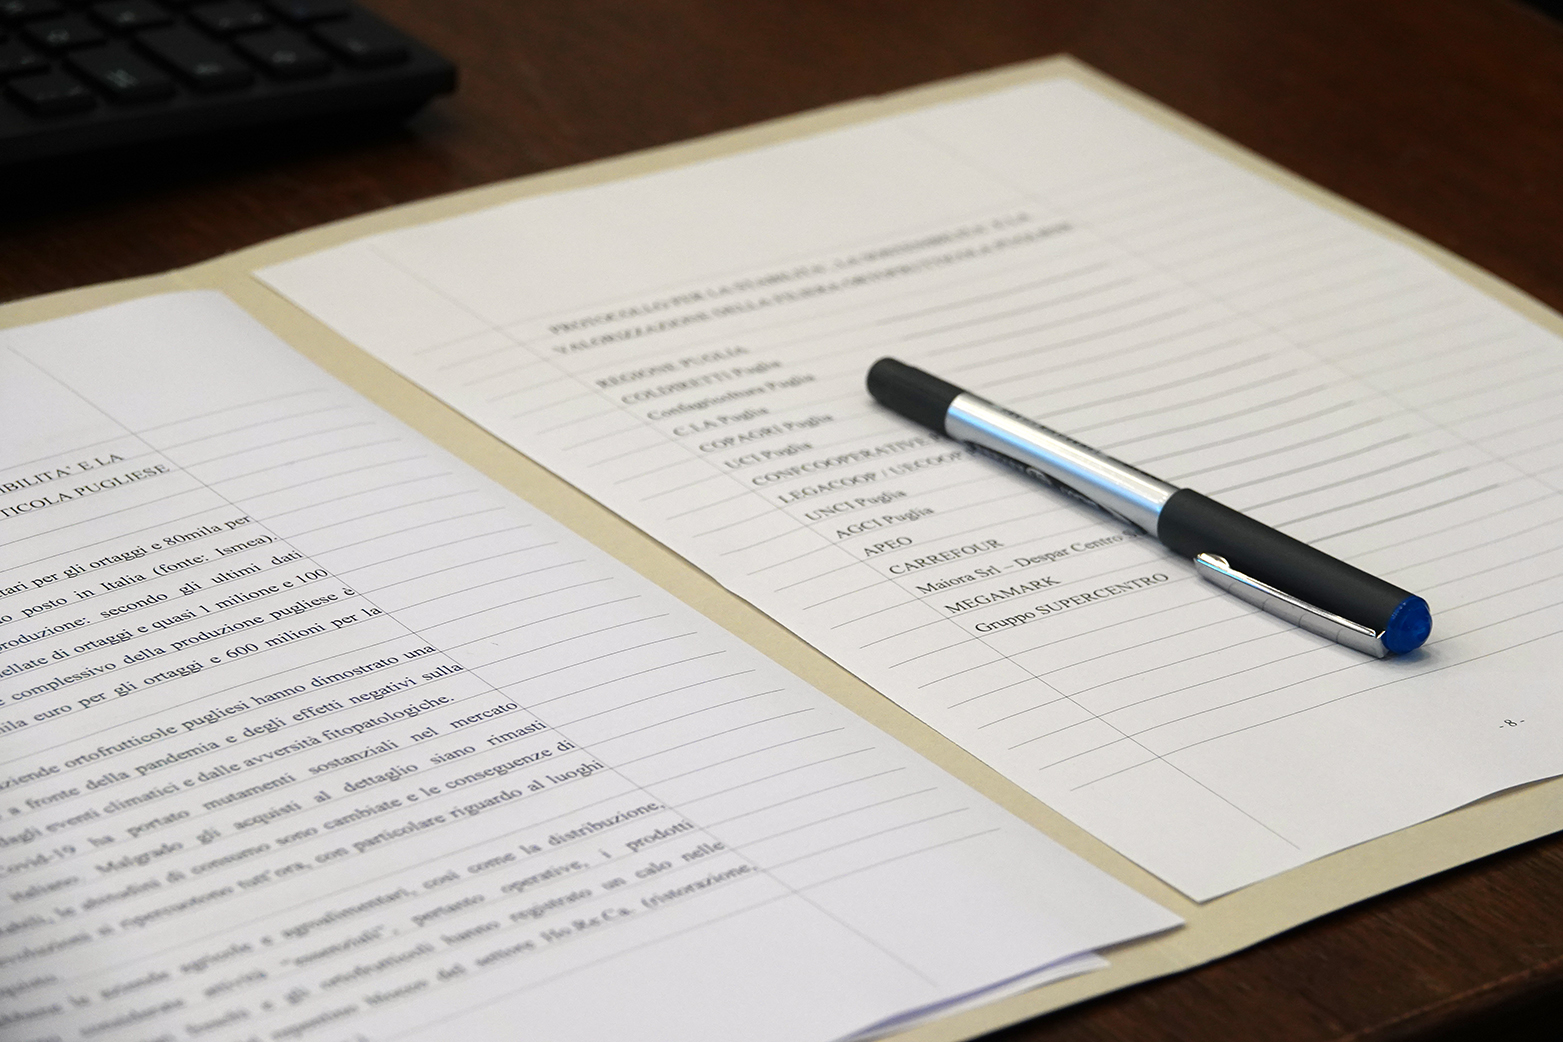 IBILITA' E LA
TICOLA PUGLIESE
tari per gli ortaggi e 80mila per
o posto in Italia (fonte: Ismea).
produzione: secondo gli ultimi dati
nellate di ortaggi e quasi 1 milione e 100
e complessivo della produzione pugliese è
mila euro per gli ortaggi e 600 milioni per la
aziende ortofrutticole pugliesi hanno dimostrato una
a fronte della pandemia e degli effetti negativi sulla
dagli eventi climatici e dalle avversità fitopatologiche.
Covid-19 ha portato mutamenti sostanziali nel mercato
italiano. Malgrado gli acquisti al dettaglio siano rimasti
le abitudini di consumo sono cambiate e le conseguenze di
si ripercuotono tutt'ora, con particolare riguardo al luoghi
le aziende agricole e agroalimentari, così come la distribuzione,
considerate attività "essenziali", pertanto operative, i prodotti
e gli ortofrutticoli hanno registrato un calo nelle
blocco del settore Ho.Re.Ca. (ristorazione,
PROTOCOLLO PER LA STABILITA', LA SOSTENIBILITA' E LA
VALORIZZAZIONE DELLA FILIERA ORTOFRUTTICOLA PUGLIESE
REGIONE PUGLIA
COLDIRETTI Puglia
Confagricoltura Puglia
C.I.A Puglia
COPAGRI Puglia
UCI Puglia
CONFCOOPERATIVE
LEGACOOP / UECOOP
UNCI Puglia
AGCI Puglia
APEO
CARREFOUR
Maiora Srl – Despar Centro S
MEGAMARK
Gruppo SUPERCENTRO
-8-